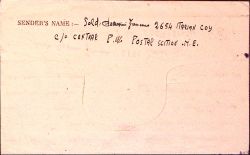 SENDER'S NAME :— Sold. 2654 ITALIAN COY
c/o CENTRAL P.W. POSTAL SECTION .M.E.